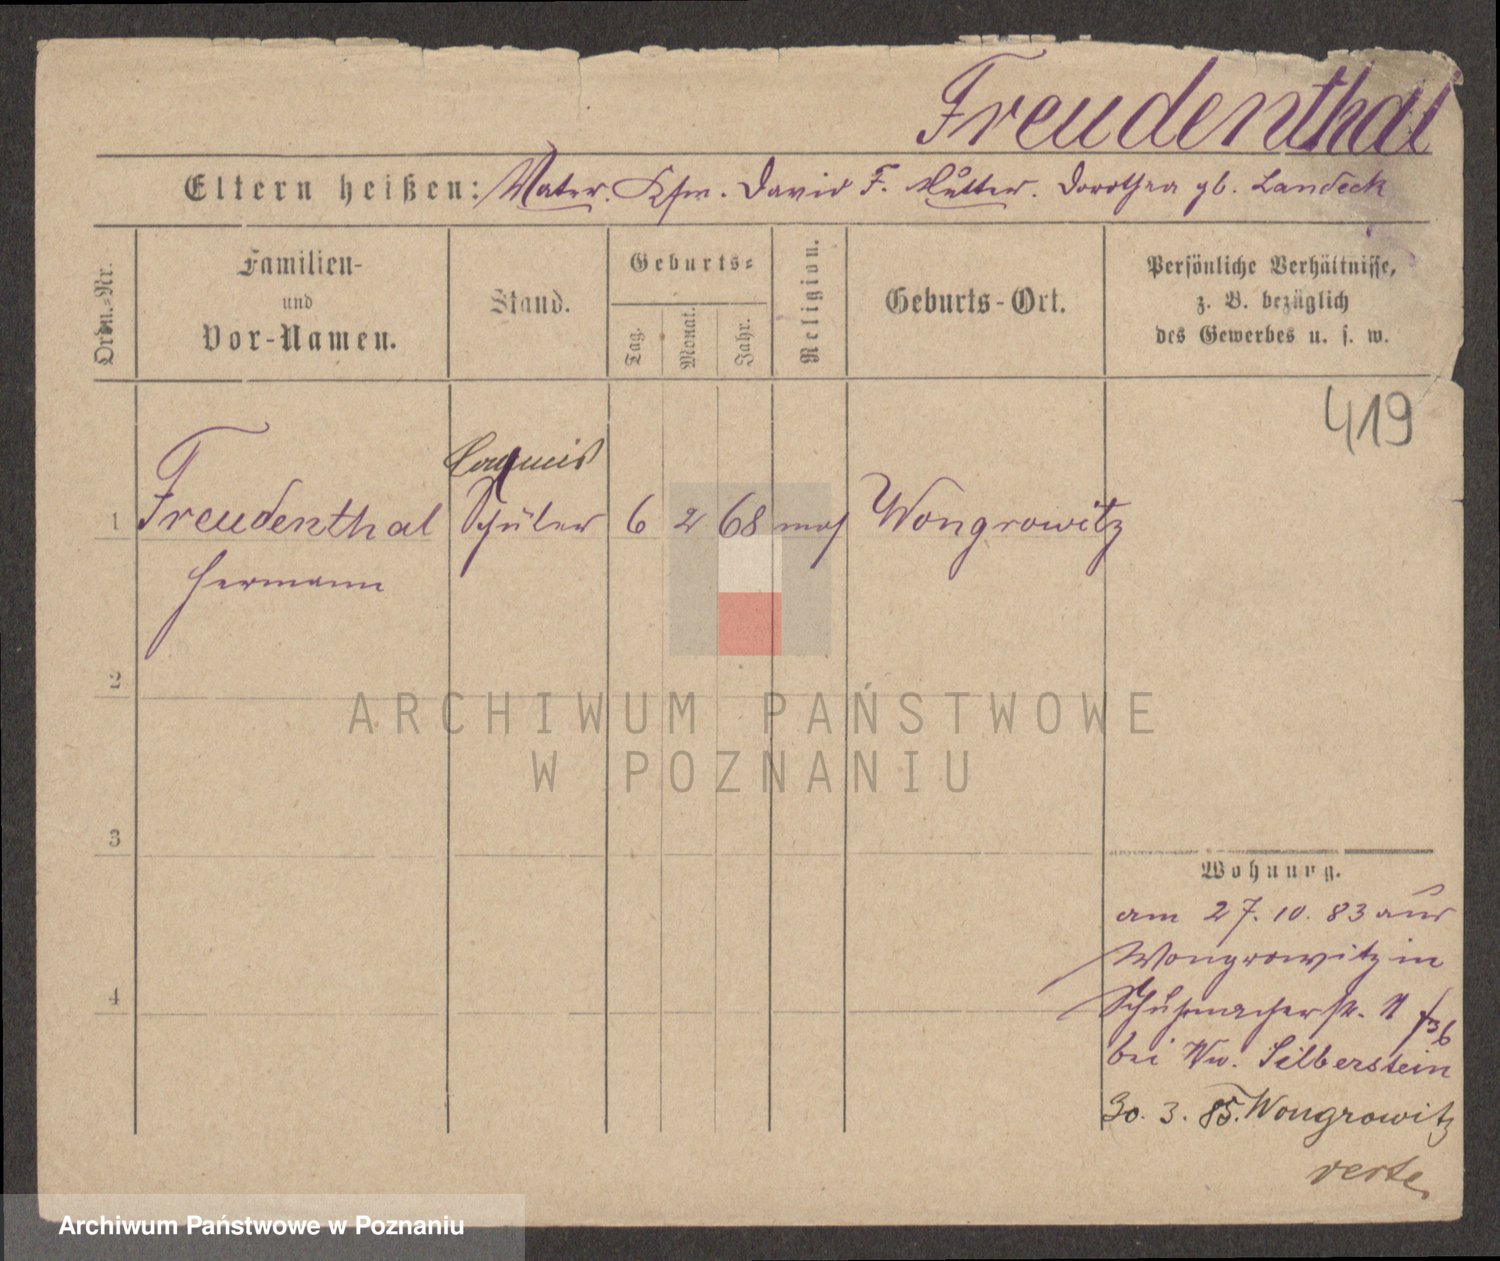 Freudenthal
Eltern heißen: Vater. Kfm. David F. Mutter. Dorothea gb. Landeck
Ordn.-Nr.
Familien-
und
Vor-Namen.
Stand.
Geburts-
Tag.
Monat.
Jahr.
Religion.
Geburts-Ort.
Persönliche Verhältnisse,
z. B. bezüglich
des Gewerbes u. s. w.
419
Commis
1 Freudenthal Schüler 6 2 68 mos Wongrowitz
Hermann
2
ARCHIWUM PAŃSTWOWE
W POZNANIU
3
Wohnung.
am 27. 10. 83 aus
Wongrowitz in
4
Schuhmacherstr.
bei Ww. Silberstein
30. 3. 85. Wongrowitz
verte
Archiwum Państwowe w Poznaniu